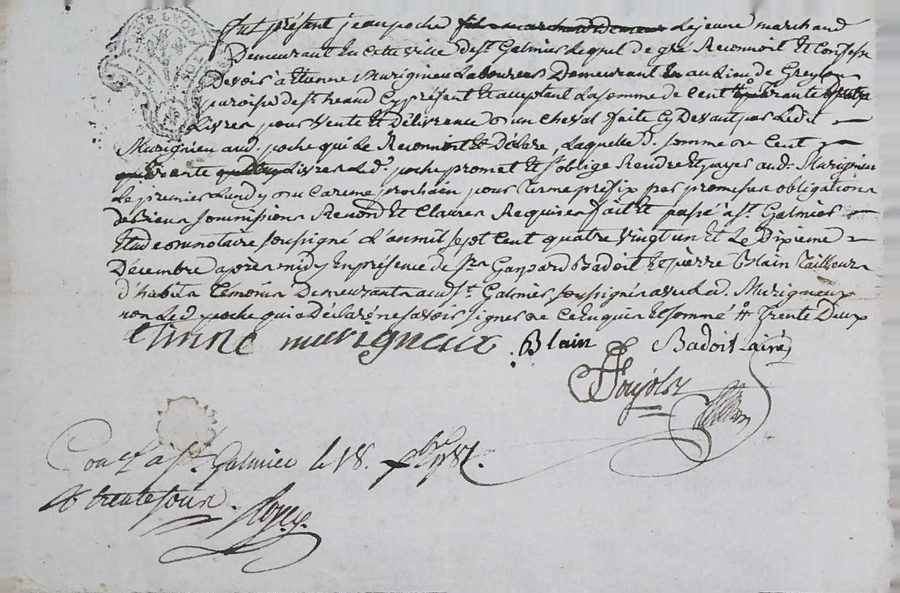 LYON
fut présent jean poche fils marchand demeur Lejeune marchand
Demeurant En Cette ville de st Galmier Lequel de gré Reconnoit Et Confesse
Devoir a Etienne Murigneu Laboureur Demeurant au Lieu de
paroisse de st heand Cy présent Et acceptant La somme de Cent trente deux
Livres pour vente Et délivrence d'un Cheval faite Cy Devant par Ledit
Murignieu aud. poche qui Le Reconnoit Et déclare, Laquelle d. somme de Cent
Livres Led. poche promet Et s'oblige Rendre Et payer aud. Murignieu
Le premier Lundy du Careme prochain pour terme préfix par promesses obligations
de Biens soumissions Renond Et Clauses Requises fait Et passé a st. Galmier
Etude du notaire soussigné L'an mil sept Cent quatre vingt un Et Le Dixieme
Décembre apres midy En présence de srs Gaspard Badoit Et pierre Blain Tailleurs
d'habits Temoins Demeurants aud. st. Galmier soussignés avec Led. Murigneux
non Led. poche qui a déclaré ne savoir signer de Ce Enquis Et sommé # Trente Deux
etienne murigneux Blain Badoit ainé
Conlé à st. Galmier le 18. xbre 1781.